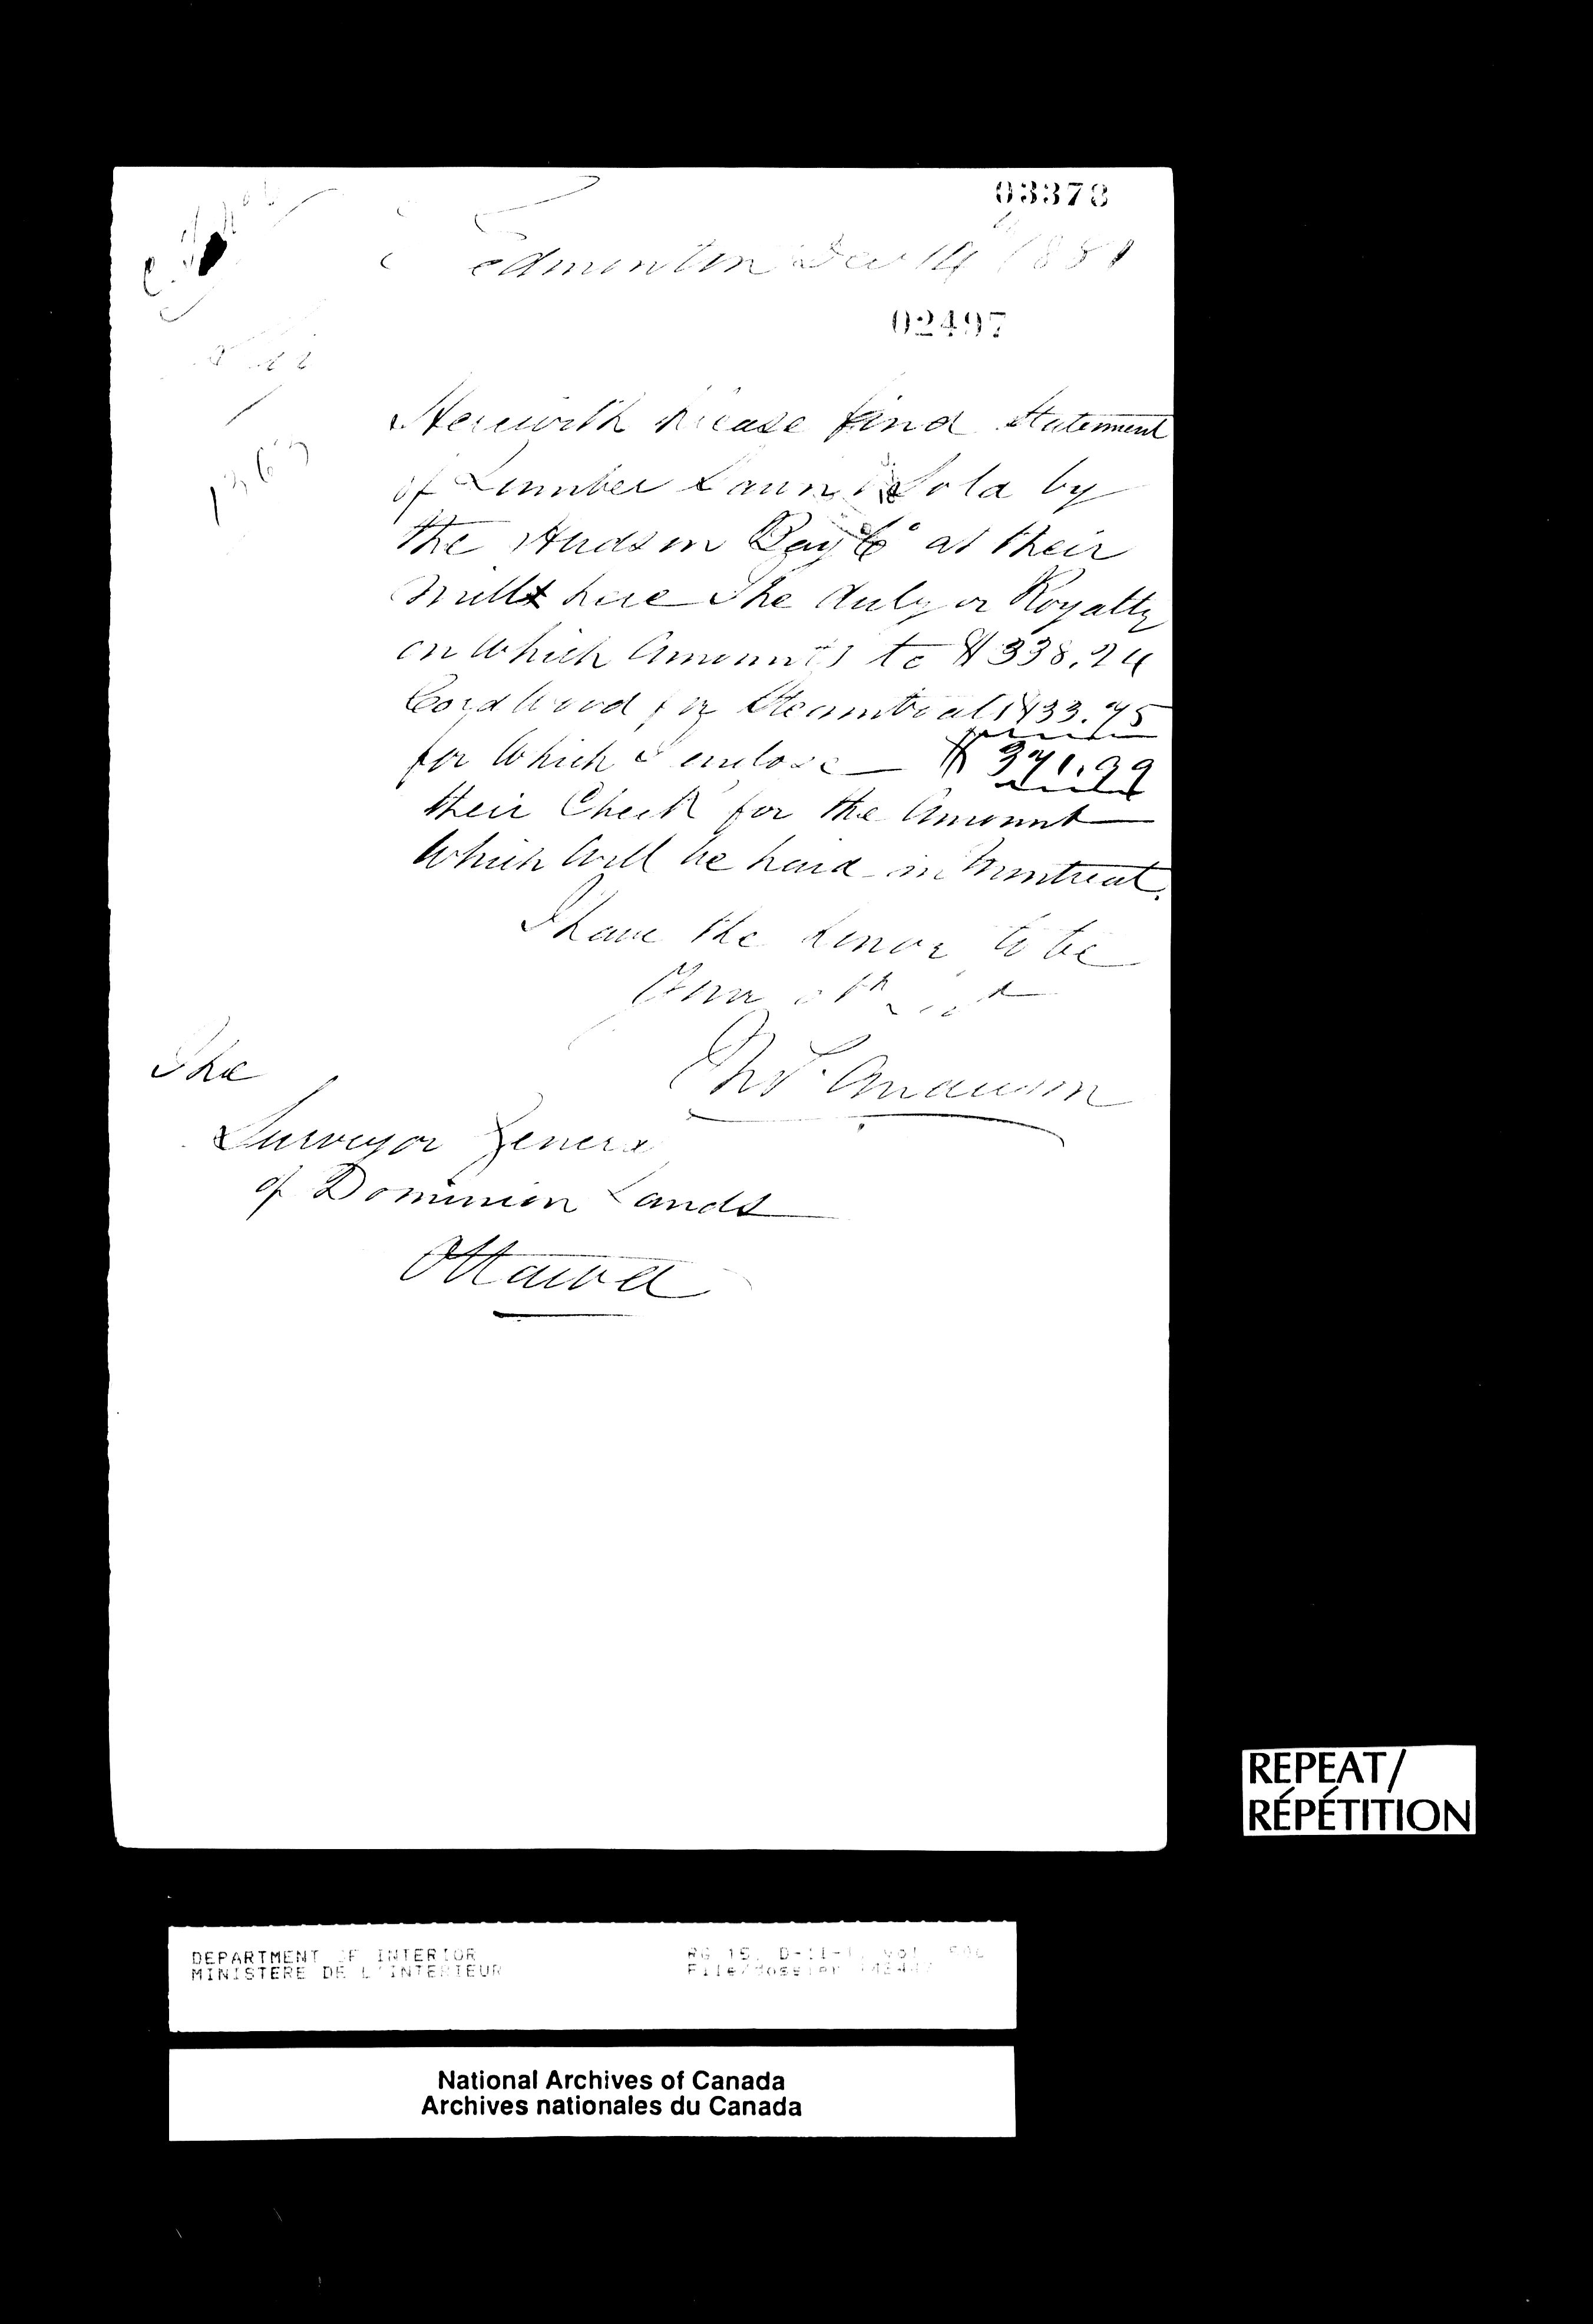 03378
Edmonton Dec 14 1881
02497
1363
Herewith please find Statement
of Lumber Sawn & Sold by
the Hudson Bay Co at their
Mills here The duty or Royalty
on Which Amounts to $338.24
Cord Wood for Steamboat 33.75
for Which I enclose $371.99
their Check for the Amount
Which Will be paid in Montreal.
I have the honor to be
Your
Thos. Anderson
The
Surveyor General
of Dominion Lands
Ottawa
REPEAT/
RÉPÉTITION
DEPARTMENT OF INTERIOR RG 15, D-II-1, vol.
MINISTERE DE L'INTERIEUR File/dossier
National Archives of Canada
Archives nationales du Canada